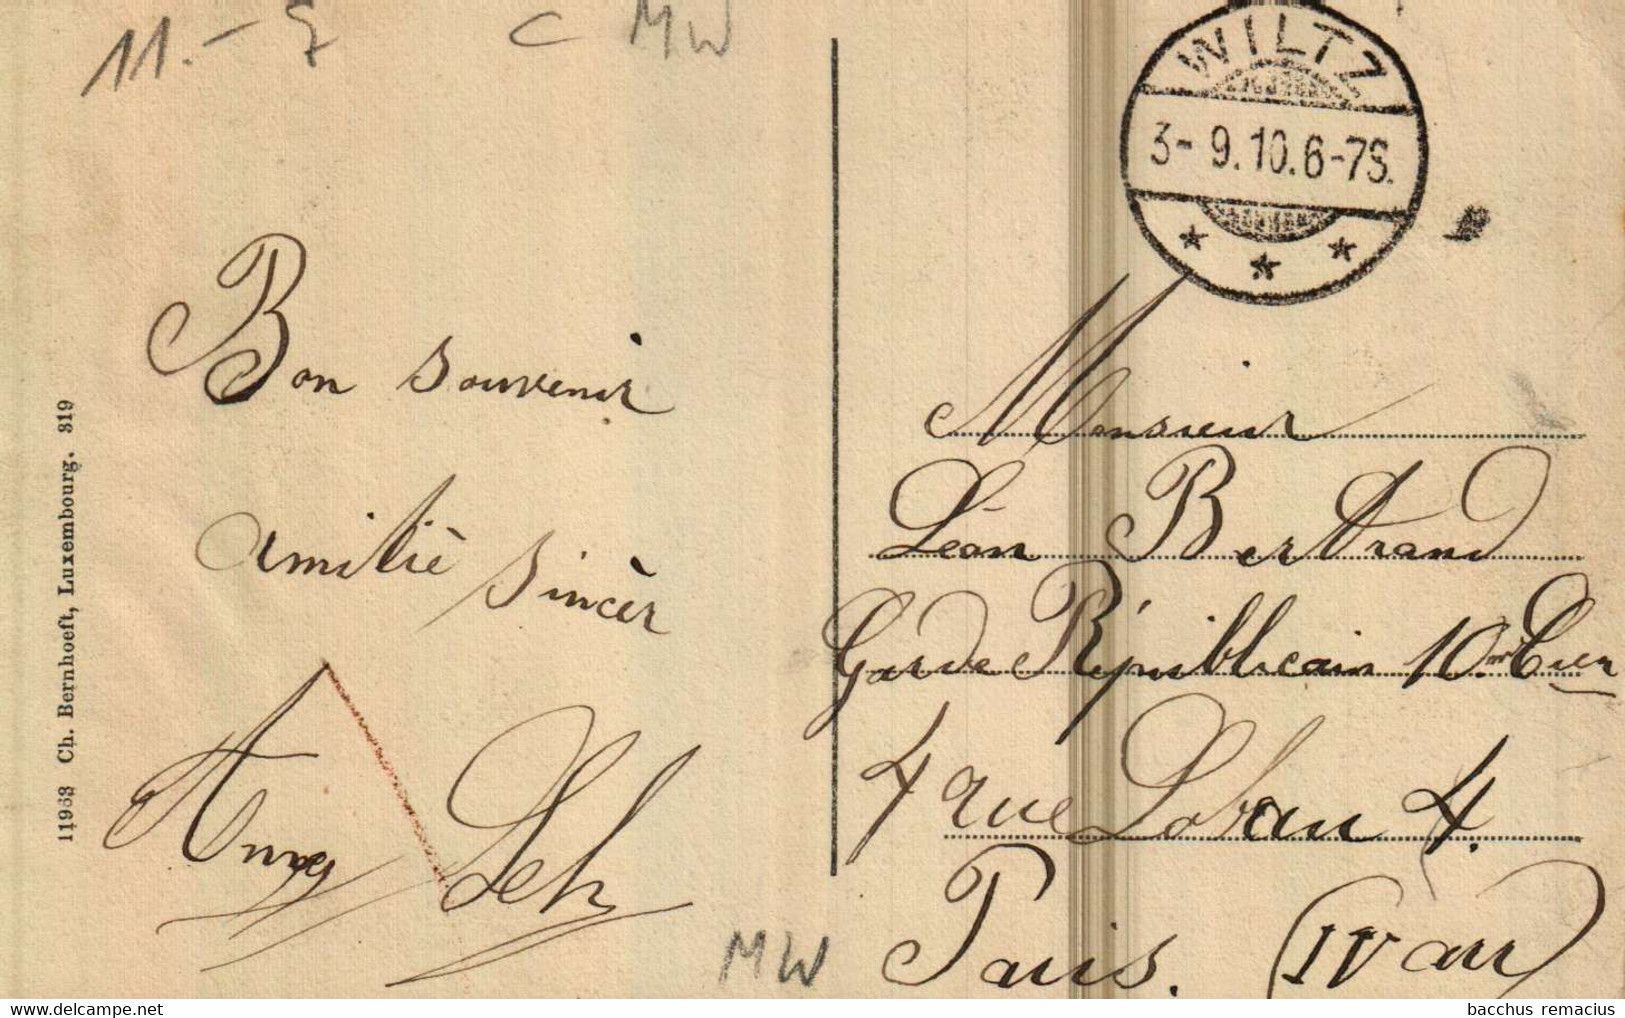 11.- 7 c MW
WILTZ
3-9.10.6-7S.
Bon souvenir
amitié sincèr
Leh
11963 Ch. Bernhoeft, Luxembourg. 319
Monsieur
Léon Bertrand
Garde Républicain 10me Cien
4 rue Lobau 4.
Paris. (IV arr)
MW
bacchus remacius